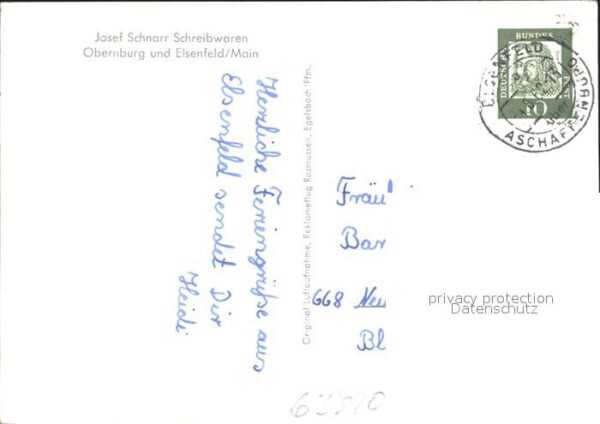 Josef Schnarr Schreibwaren
Obernburg und Elsenfeld/Main
Herzliche Feriengrüße aus
Elsenfeld sendet Dir
Heidi
Original Luftaufnahme, Reklameflug Rasmussen, Egelsbach Ffm.
DEUTSCHE BUNDESPOST
10
ASCHAFF
Fräul
Bar
668 Neu
Bl
privacy protection
Datenschutz
63820